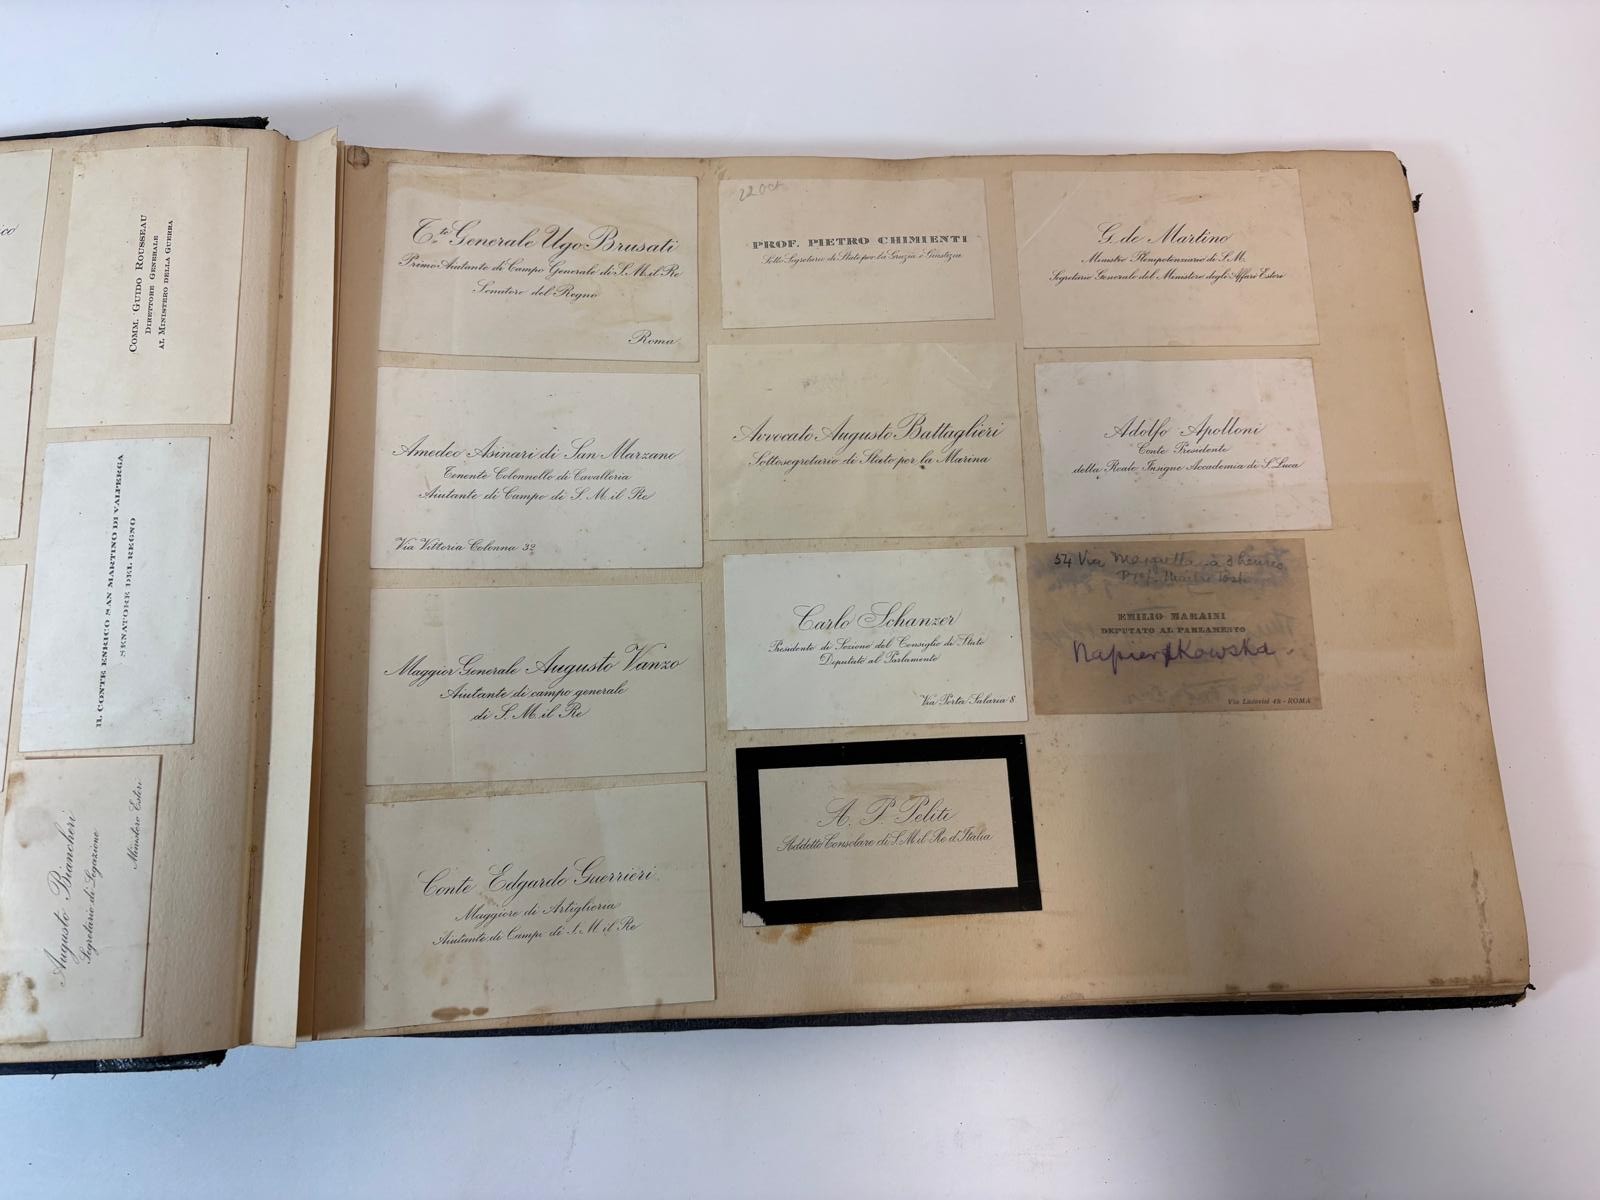 ico
COMM. GUIDO ROUSSEAU
DIRETTORE GENERALE
AL MINISTERO DELLA GUERRA
IL CONTE ENRICO SAN MARTINO DI VALPERGA
SENATORE DEL REGNO
Augusto Biancheri
Segretario di Legazione
Ministero Esteri
T.te Generale Ugo Brusati
Primo Aiutante di Campo Generale di S. M. il Re
Senatore del Regno
Roma
Amedeo Asinari di San Marzano
Tenente Colonnello di Cavalleria
Aiutante di Campo di S. M. il Re
Via Vittoria Colonna 32
Maggior Generale Augusto Vanzo
Aiutante di campo generale
di S. M. il Re
Conte Edgardo Guerrieri
Maggiore di Artiglieria
Aiutante di Campo di S. M. il Re
22 Oct
PROF. PIETRO CHIMIENTI
Sotto Segretario di Stato per la Grazia e Giustizia
Avvocato Augusto Battaglieri
Sottosegretario di Stato per la Marina
Carlo Schanzer
Presidente di Sezione del Consiglio di Stato
Deputato al Parlamento
Via Porta Salaria 8
A. P. Peliti
Addetto Consolare di S. M. il Re d'Italia
G. de Martino
Ministro Plenipotenziario di S. M.
Segretario Generale del Ministero degli Affari Esteri
Adolfo Apolloni
Conte Presidente
della Reale Insigne Accademia di S. Luca
54 Via à 3 heures
Prof.
EMILIO MARAINI
DEPUTATO AL PARLAMENTO
Napierkowska
Via Ludovisi 48 - ROMA